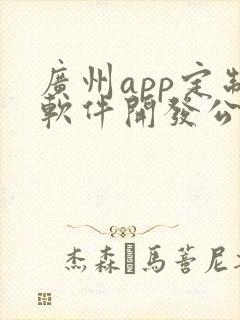 廣州app定制
軟件開發公
杰森 馬蒈尼